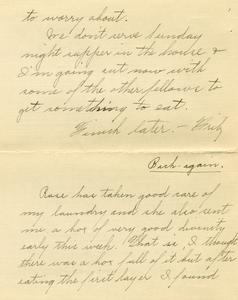 to worry about.
We don't serve Sunday
night supper in the house &
I'm going out now with
some of the other fellows to
get something to eat.
Finish later. -
Back again.
Rose has taken good care of
my laundry and she also sent
me a box of very good divinity
early this week. That is, I though
there was a box full of it but after
eating the first layer I found